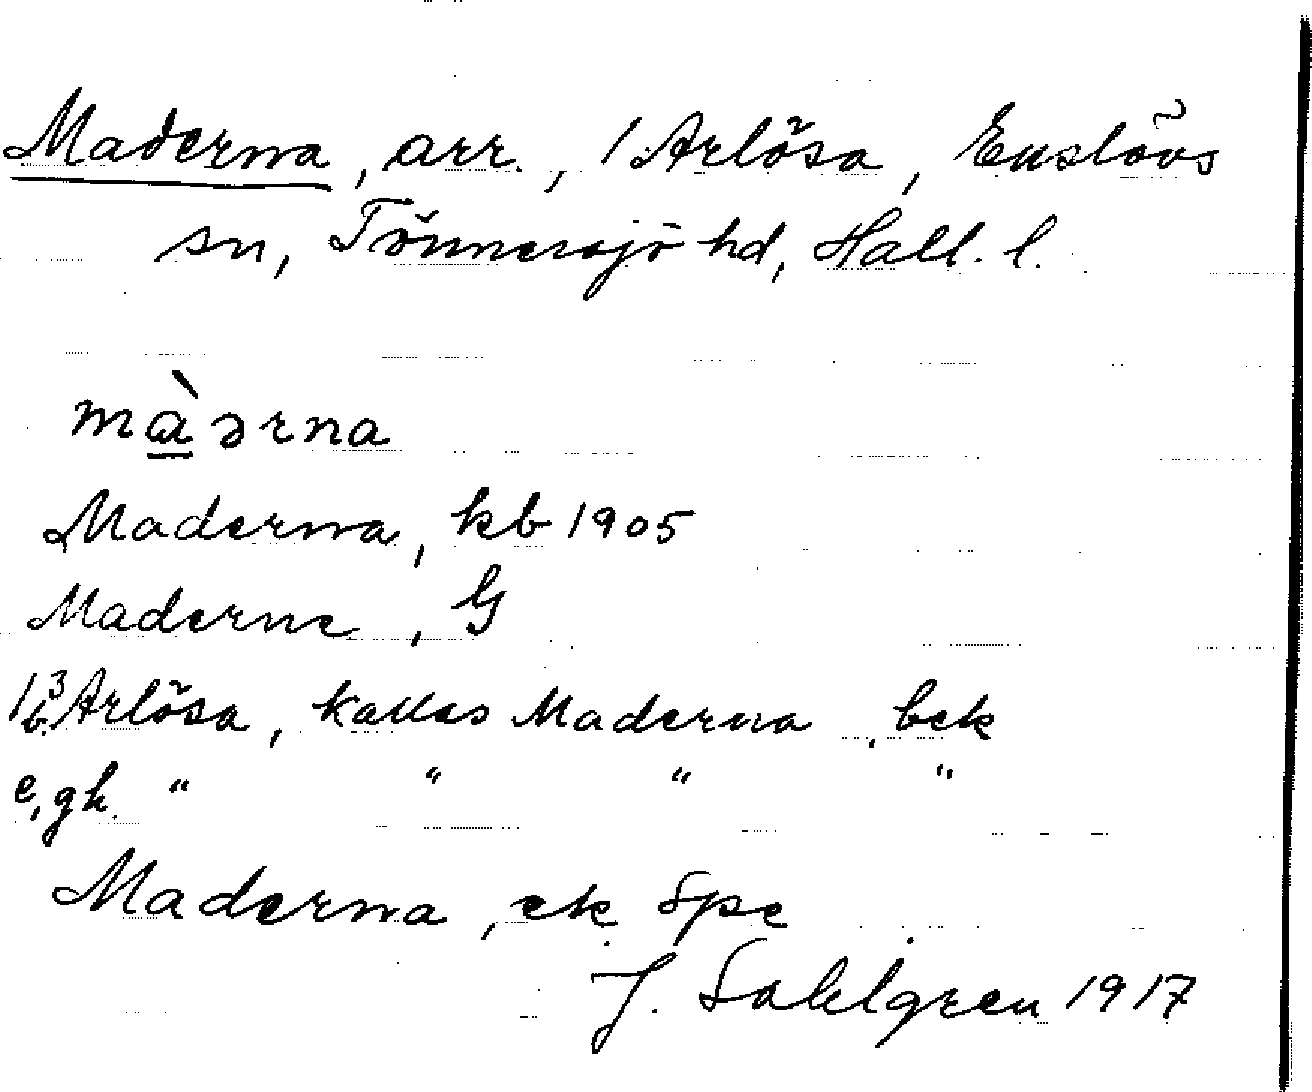 Maderna, arr., 1 Arlösa, Enslövs
sn, Tönnersjö hd, Hall. l.
màərna
Maderna, kb 1905
Maderne, G
1 3/6 Arlösa, kallas Maderna, bek
e, gh. " " " "
Maderna, ek Spe
J. Sahlgren 1917